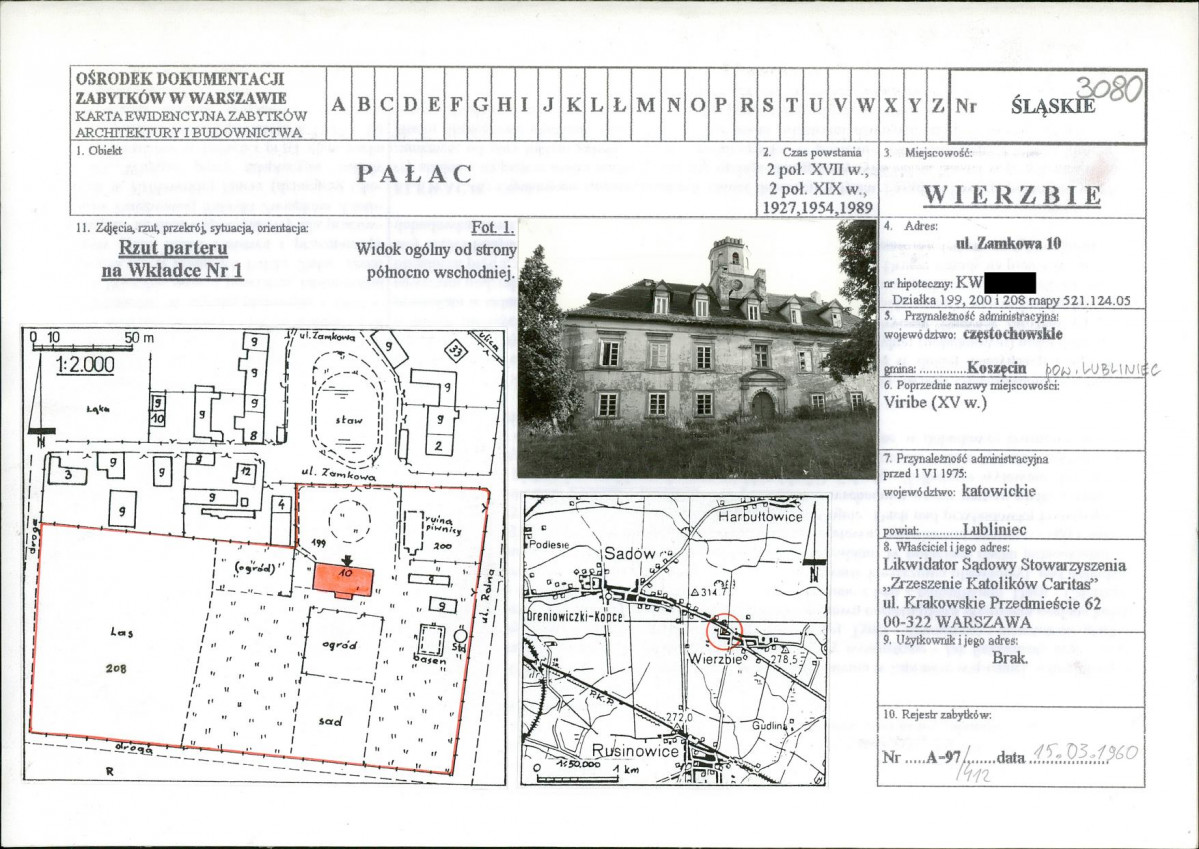 OŚRODEK DOKUMENTACJI
ZABYTKÓW W WARSZAWIE
KARTA EWIDENCYJNA ZABYTKÓW
ARCHITEKTURY I BUDOWNICTWA
A B C D E F G H I J K L Ł M N O P R S T U V W X Y Z
Nr ŚLĄSKIE
3080
1. Obiekt
PAŁAC
2. Czas powstania
2 poł. XVII w.,
2 poł. XIX w.,
1927,1954,1989
3. Miejscowość:
WIERZBIE
11. Zdjęcia, rzut, przekrój, sytuacja, orientacja:
Rzut parteru
na Wkładce Nr 1
Fot. 1.
Widok ogólny od strony
północno wschodniej.
4. Adres:
ul. Zamkowa 10
nr hipoteczny: KW
Działka 199, 200 i 208 mapy 521.124.05
5. Przynależność administracyjna:
województwo: częstochowskie
gmina: ..............Koszęcin pow. LUBLINIEC
6. Poprzednie nazwy miejscowości:
Viribe (XV w.)
7. Przynależność administracyjna
przed 1 VI 1975:
województwo: katowickie
powiat:.............Lubliniec
8. Właściciel i jego adres:
Likwidator Sądowy Stowarzyszenia
„Zrzeszenie Katolików Caritas”
ul. Krakowskie Przedmieście 62
00-322 WARSZAWA
9. Użytkownik i jego adres:
Brak.
10. Rejestr zabytków:
Nr .....A-97/.......data 15.03.1960
/412
0 10 50 m
1:2.000
ul. Zamkowa
ulica
łąka
g
g
g
g
g
33
g
g
10
8
2
staw
ul. Zamkowa
3
g
g
g
12
g
g
4
droga
199
ruina
piwnicy
200
(ogród)
10
g
g
ul. Rolna
Las
208
ogród
basen
Std
sad
droga
R
Harbułtowice
Podlesie
Sadów
314
Dreniowiczki-Kopce
Wierzbie
278,5
P.K.P.
272,0
Gudlina
Rusinowice
1:50,000
0 1 km